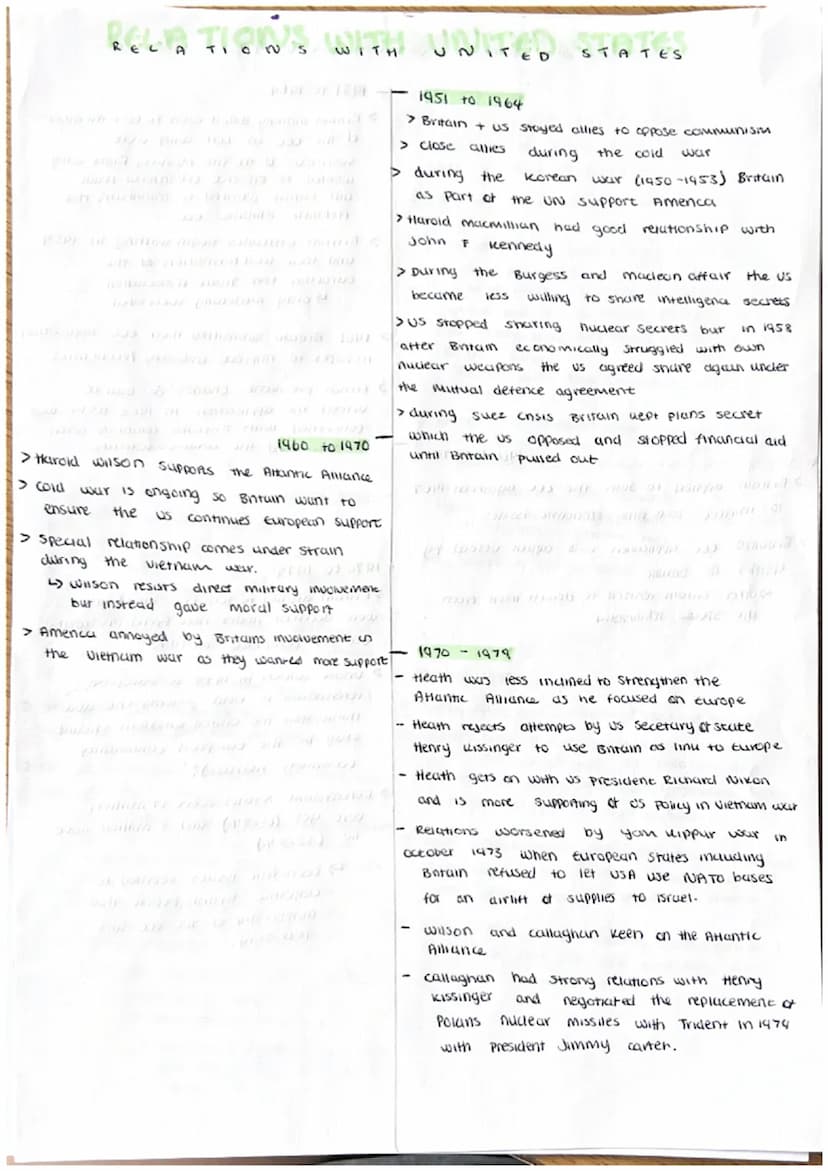 RELATIONS WITH UNITED STATES
1951 to 1964
> Britain + US stayed allies to oppose communism
> close allies during the cold war
> during the Korean war (1950-1953) Britain
as part of the UN support America
> Harold macmillian had good relationship with
John F Kennedy
> During the Burgess and maclean affair the US
became less willing to share intelligence secrets
> US stopped sharing nuclear secrets but in 1958
after Britain economically struggled with own
nuclear weapons the US agreed share again under
the mutual defence agreement
> during suez crisis Britain kept plans secret
which the US opposed and stopped financial aid
until Britain pulled out
1960 to 1970
> Harold wilson supports the Atlantic Alliance
> cold war is ongoing so Britain want to
ensure the US continues European support
> special relationship comes under strain
during the vietnam war.
↳ wilson resists direct military involvement
but instead gave moral support
> America annoyed by Britains involvement in
the vietnam war as they wanted more support
1970 - 1979
- Heath was less inclined to strengthen the
Atlantic Alliance as he focused on Europe
- Heath rejects attempts by US Secetary of state
Henry Kissinger to use Britain as link to Europe
- Heath gets on with US President Richard Nixon
and is more supporting of US policy in Vietnam war
- Relations worsened by yom kippur war in
october 1973 when European states including
Britain refused to let USA use NATO bases
for an airlift of supplies to israel.
- wilson and callaghan keen on the Atlantic
Alliance
- callaghan had strong relations with Henry
Kissinger and negotiated the replacement of
Polaris nuclear missiles with Trident in 1979
with president Jimmy carter.